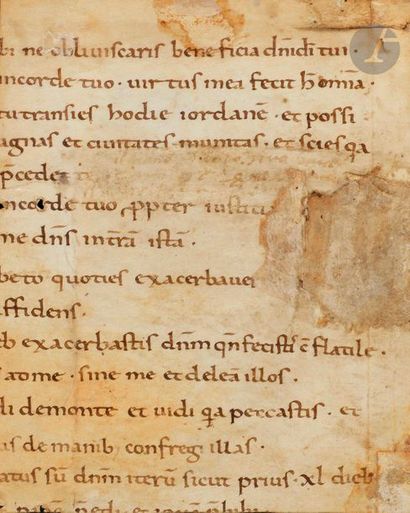 bi ne obliviscaris beneficia dn̄i dī tui ·
incorde tuo · virtus mea fecit h̄ om̄ia
tu transies hodie iordanē · et possi
agnas et civitates munitas · et scies q̄a
p̄cedet
ncorde tuo ꝓpter iustiti
me dn̄s in tr̄ā istā ·
beto quoties exacerbaver
ffidens ·
eb exacerbastis dn̄m qn̄ fecistī c̄flatile ·
atome · sine me et deleā illos ·
di demonte et vidi q̄a peccastis · et
us de manib confregi illas ·
atus sū dn̄m iterū sicut prius · xl dieb